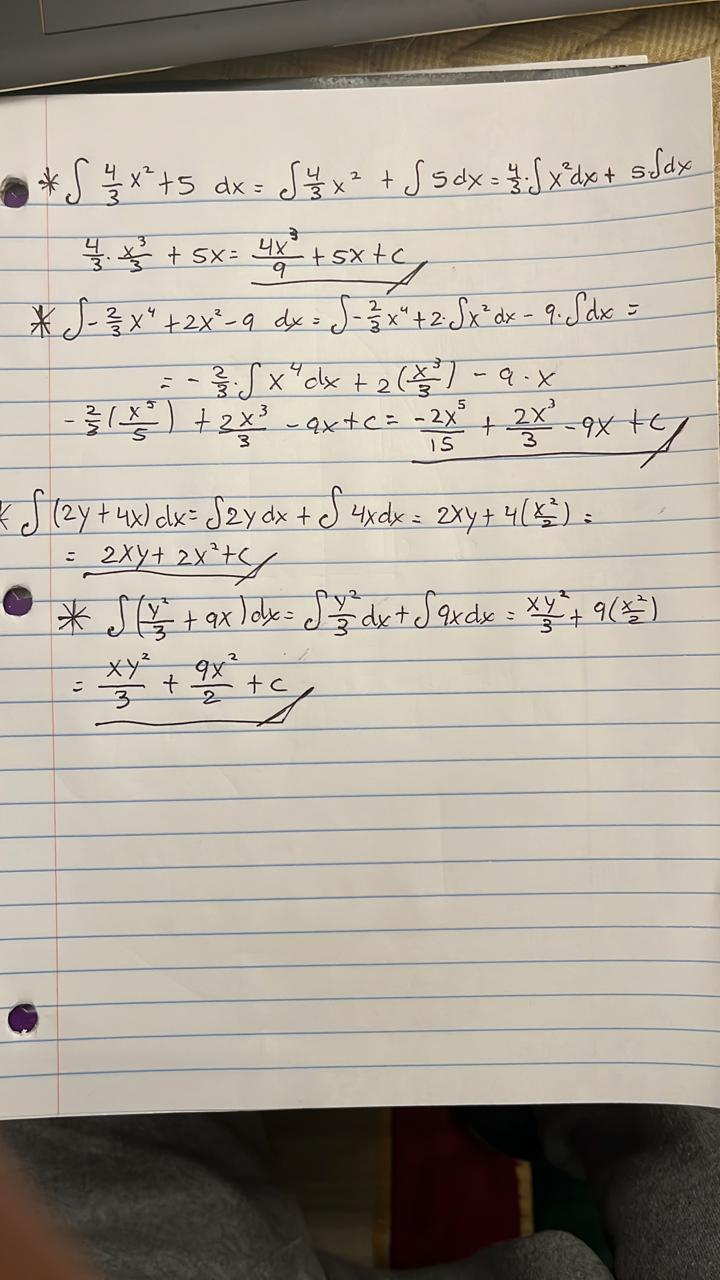 * ∫ 4/3 x² + 5 dx = ∫ 4/3 x² + ∫ 5 dx = 4/3 · ∫ x² dx + 5 ∫ dx
4/3 · x³/3 + 5x = 4x³/9 + 5x + c
* ∫ - 2/3 x⁴ + 2x² - 9 dx = ∫ - 2/3 x⁴ + 2 · ∫ x² dx - 9 · ∫ dx =
= - 2/3 · ∫ x⁴ dx + 2 (x³/3) - 9 · x
- 2/3 (x⁵/5) + 2x³/3 - 9x + c = -2x⁵/15 + 2x³/3 - 9x + c
* ∫ (2y + 4x) dx = ∫ 2y dx + ∫ 4x dx = 2xy + 4 (x²/2) =
= 2xy + 2x² + c
* ∫ (y²/3 + 9x) dx = ∫ y²/3 dx + ∫ 9x dx = xy²/3 + 9 (x²/2)
= xy²/3 + 9x²/2 + c